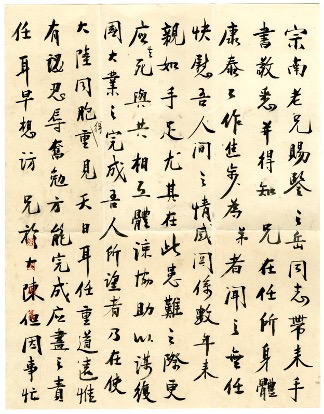 宗南老兄賜鑒之岳同志帶来手
書敬悉并得知 兄在任所身體
康泰工作進步為弟者闻之無任
快慰吾人间之情感関係數年来
親如手足尤其在此患難之際更
应生死與共相互體諒協助以謀復
國大業之完成吾人所望者乃在使
大陸同胞得重見天日耳任重道遠惟
有堅忍奋勉方能完成应盡之責
任耳早想訪 兄於大陳但因事忙